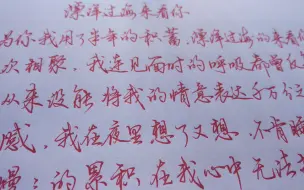 漂洋过海来看你
为你我用了半年的积蓄,漂洋过海的来看你
次相聚,我连见面时的呼吸都曾反
从来没能将我的情意表达千万分之
感,我在夜里想了又想,不肯睡
的累积在我心中无法